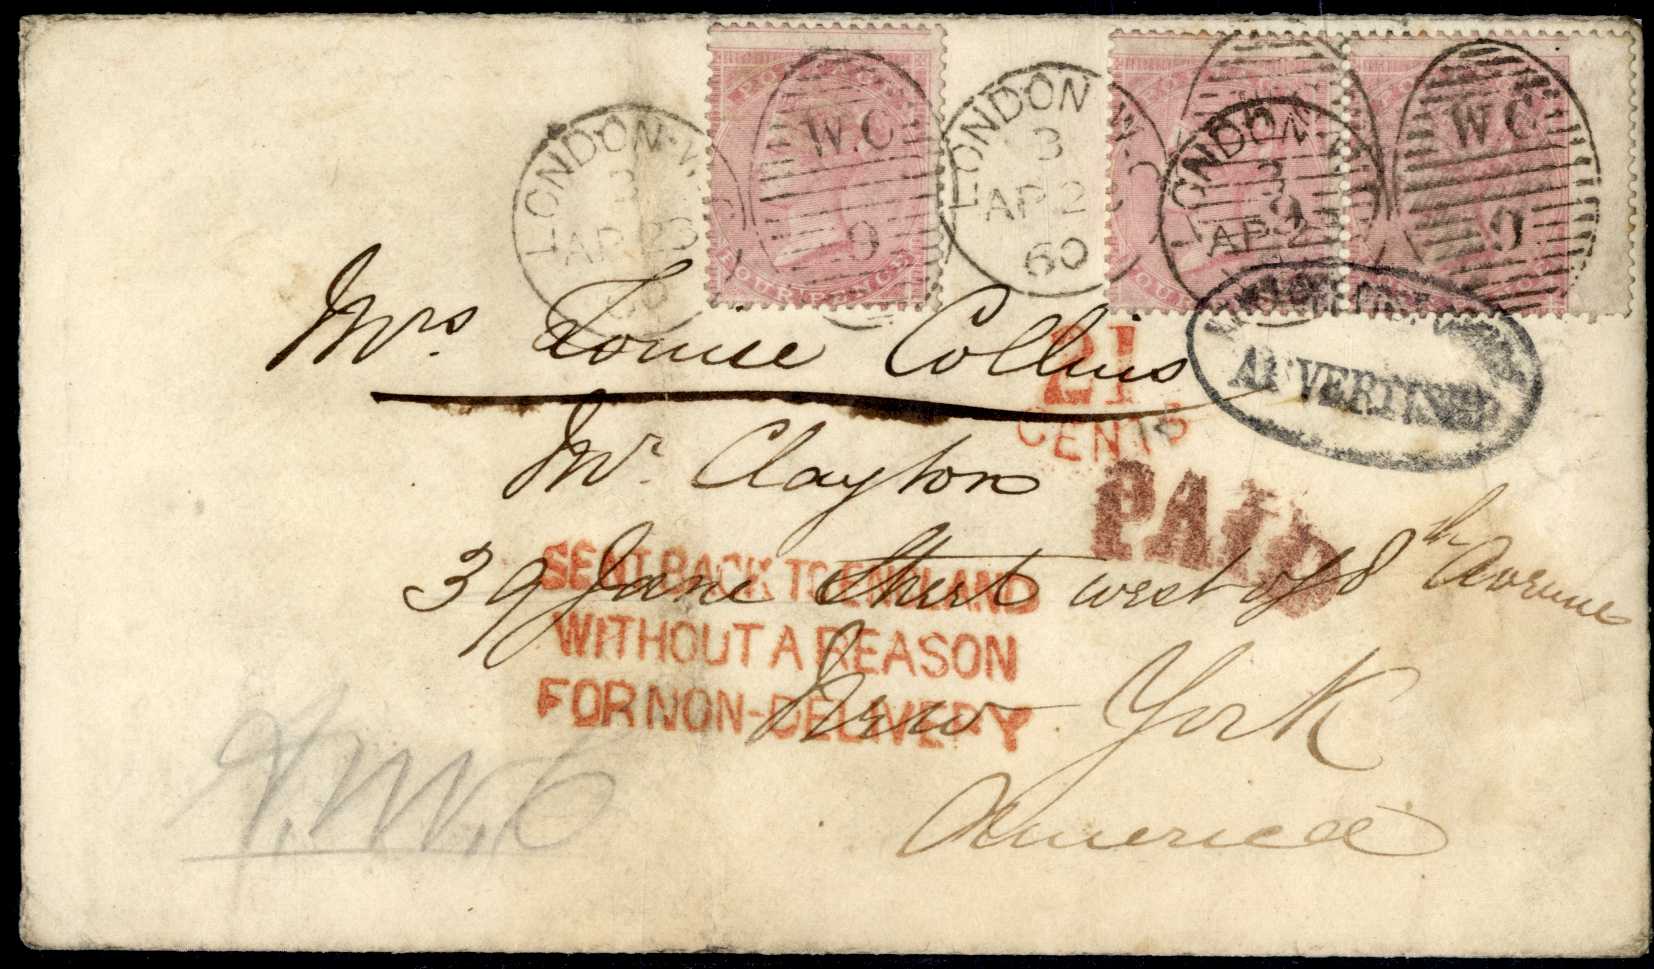 LONDON·W.C
3
AP 28
60
W.C
9
POSTAGE
FOURPENCE
LONDON W.C
3
AP 2
60
LONDON W.C
3
AP 2
W.C
9
Mrs Louise Collins
21
CENTS
NEW YORK POST OFFICE
ADVERTISED
Mr. Clayton
PAID
39 Jane Street west of 8th Avenue
SENT BACK TO ENGLAND
WITHOUT A REASON
FOR NON-DELIVERY
New York
America